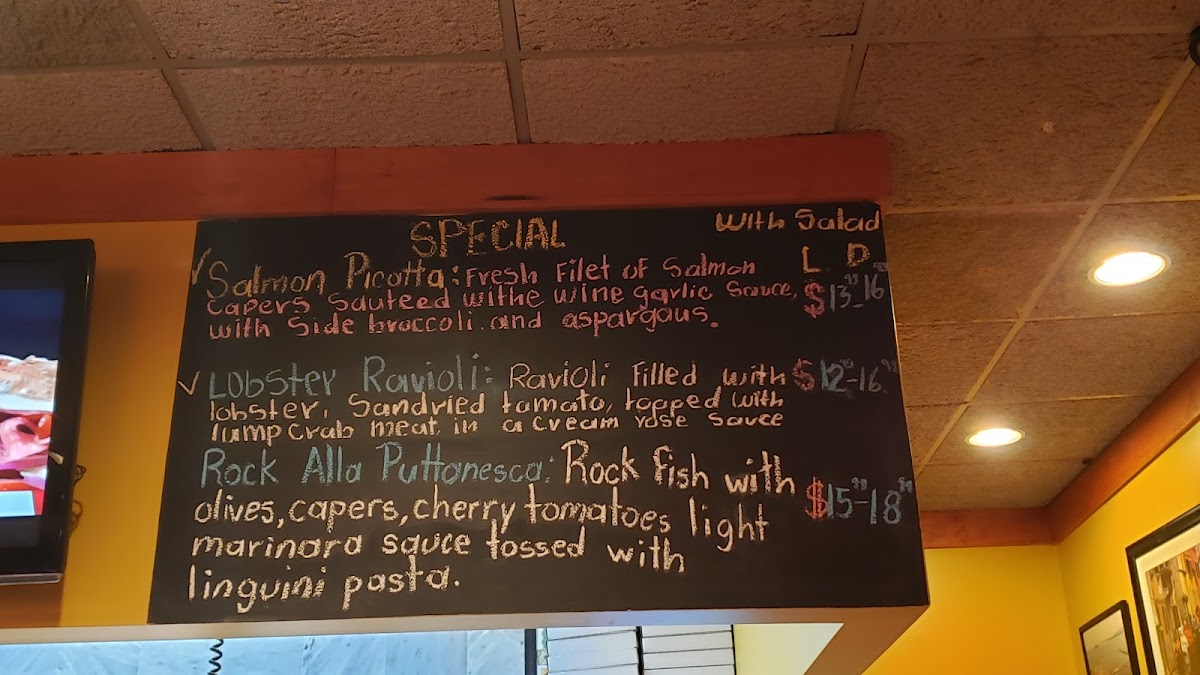 SPECIAL With Salad
L D
✓ Salmon Picatta: Fresh Filet of Salmon
capers sauteed withe wine garlic sauce, $13.99-16.99
with side broccoli and aspargaus.
✓ Lobster Ravioli: Ravioli Filled with $12.99-16.99
lobster, Sandried tomato, topped with
lump crab meat, in a cream rose sauce
Rock Alla Puttanesca: Rock fish with
olives, capers, cherry tomatoes light $15.99-18.99
marinara sauce tossed with
linguini pasta.